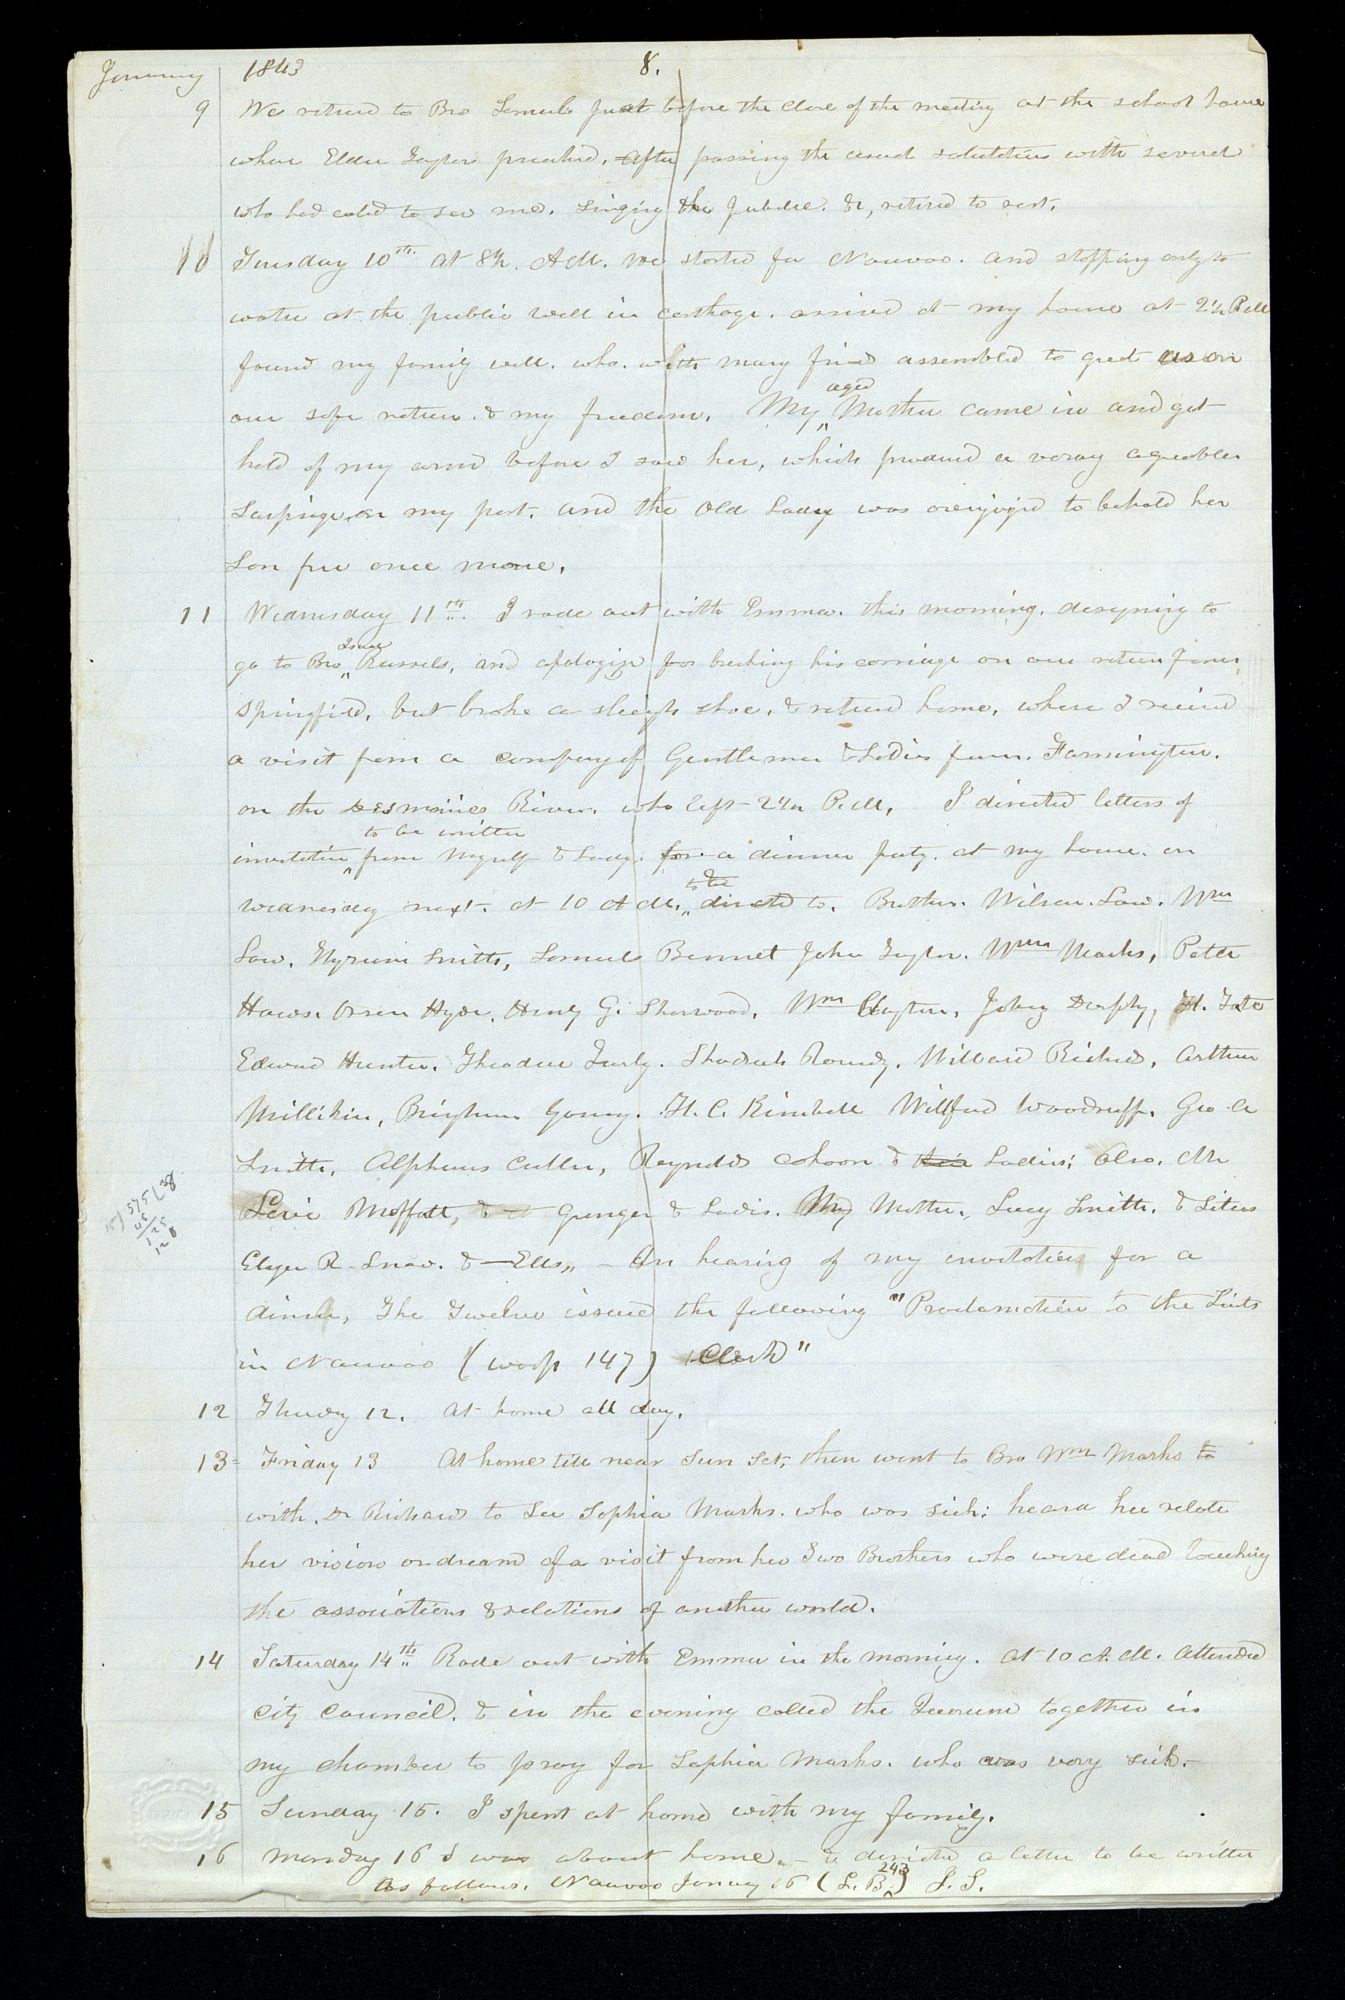 January 1843 8.
9 We returnd to Bro Samuels just before the close of the meeting at the school house
where Elder Taylor preached, after passing the usual salutations with several
who had called to see me. singing the Jubilee. &c, retired to rest.
10 Tuesday 10th. at 8½ A.M. we started for Nauvoo. and stopping only to
water at the public well in carthage. arrived at my house at 2½ P.M
found my family well. who. with many friends assembled to greet us on
our safe return. & my freedom. My aged Mother came in and got
hold of my arm before I saw her, which producd a very agreeable
Surprize on my part. and the old Lady was overjoyed to behold her
Son free once more.
11 Wednesday 11th. I rode out with Emma. this morning. designing to
go to Bro Isaac Russels, and apologize for breaking his carriage on our return from
springfield, but broke a sleigh shoe. & returnd home, where I received
a visit from a company of Gentlemen & Ladies from. Farmington.
on the Desmoines River. who left 2½ P.M. I directed letters of
invitation to be written from Myself & Lady. for a dinner party. at my house. on
wednesday next. at 10 A M. to be directed to. Brothers. Wilson. Law. Wm
Law. Hyrum Smith, Samuel Bennet John Taylor. Wm Marks, Peter
Haws. Orson Hyde. Henry G. Sherwood. Wm Clayton, Jabez Durphy, H. Tate
Edward Hunter. Theodore Turly. Shadrach Roundy. Willard Richards, Arthur
Millikin, Brigham Young. H. C. Kimball Wilford Woodruff. Geo A
Smith, Alpheus Cutler, Reynolds Cahoon & their Ladies; also. Mr
Levi Moffatt, & — Granger & Ladis. My Mother. Lucy Smith. & Sisters
Eliza R. Snow. & — Ells„ — On hearing of my invitation for a
dinner, The Twelve issued the following "Proclamation to the Saints
in Nauvoo (wasp 147) Clerk"
12 Thursdy 12. At home all day.
13= Friday 13 At home till near Sun Set, then went to Bro Wm Marks to
with. Dr Richards to See Sophia Marks. who was sick; heard her relate
her vision or dream of a visit from her Two Brothers who were dead touching
the associations & relations of another world.
14 Saturday 14th Rode out with Emma in the morning. at 10 A.M. Attended
City Council. & in the evening called the Quorum together in
my chamber to pray for Sophia Marks. who was very sick.—
15 Sunday 15. I spent at home with my family.
16 Monday 16 I was about home.— & directed a letter to be written
As follows. Nauvoo January 16 (L. B. 243) J. S.
575
45
125
120